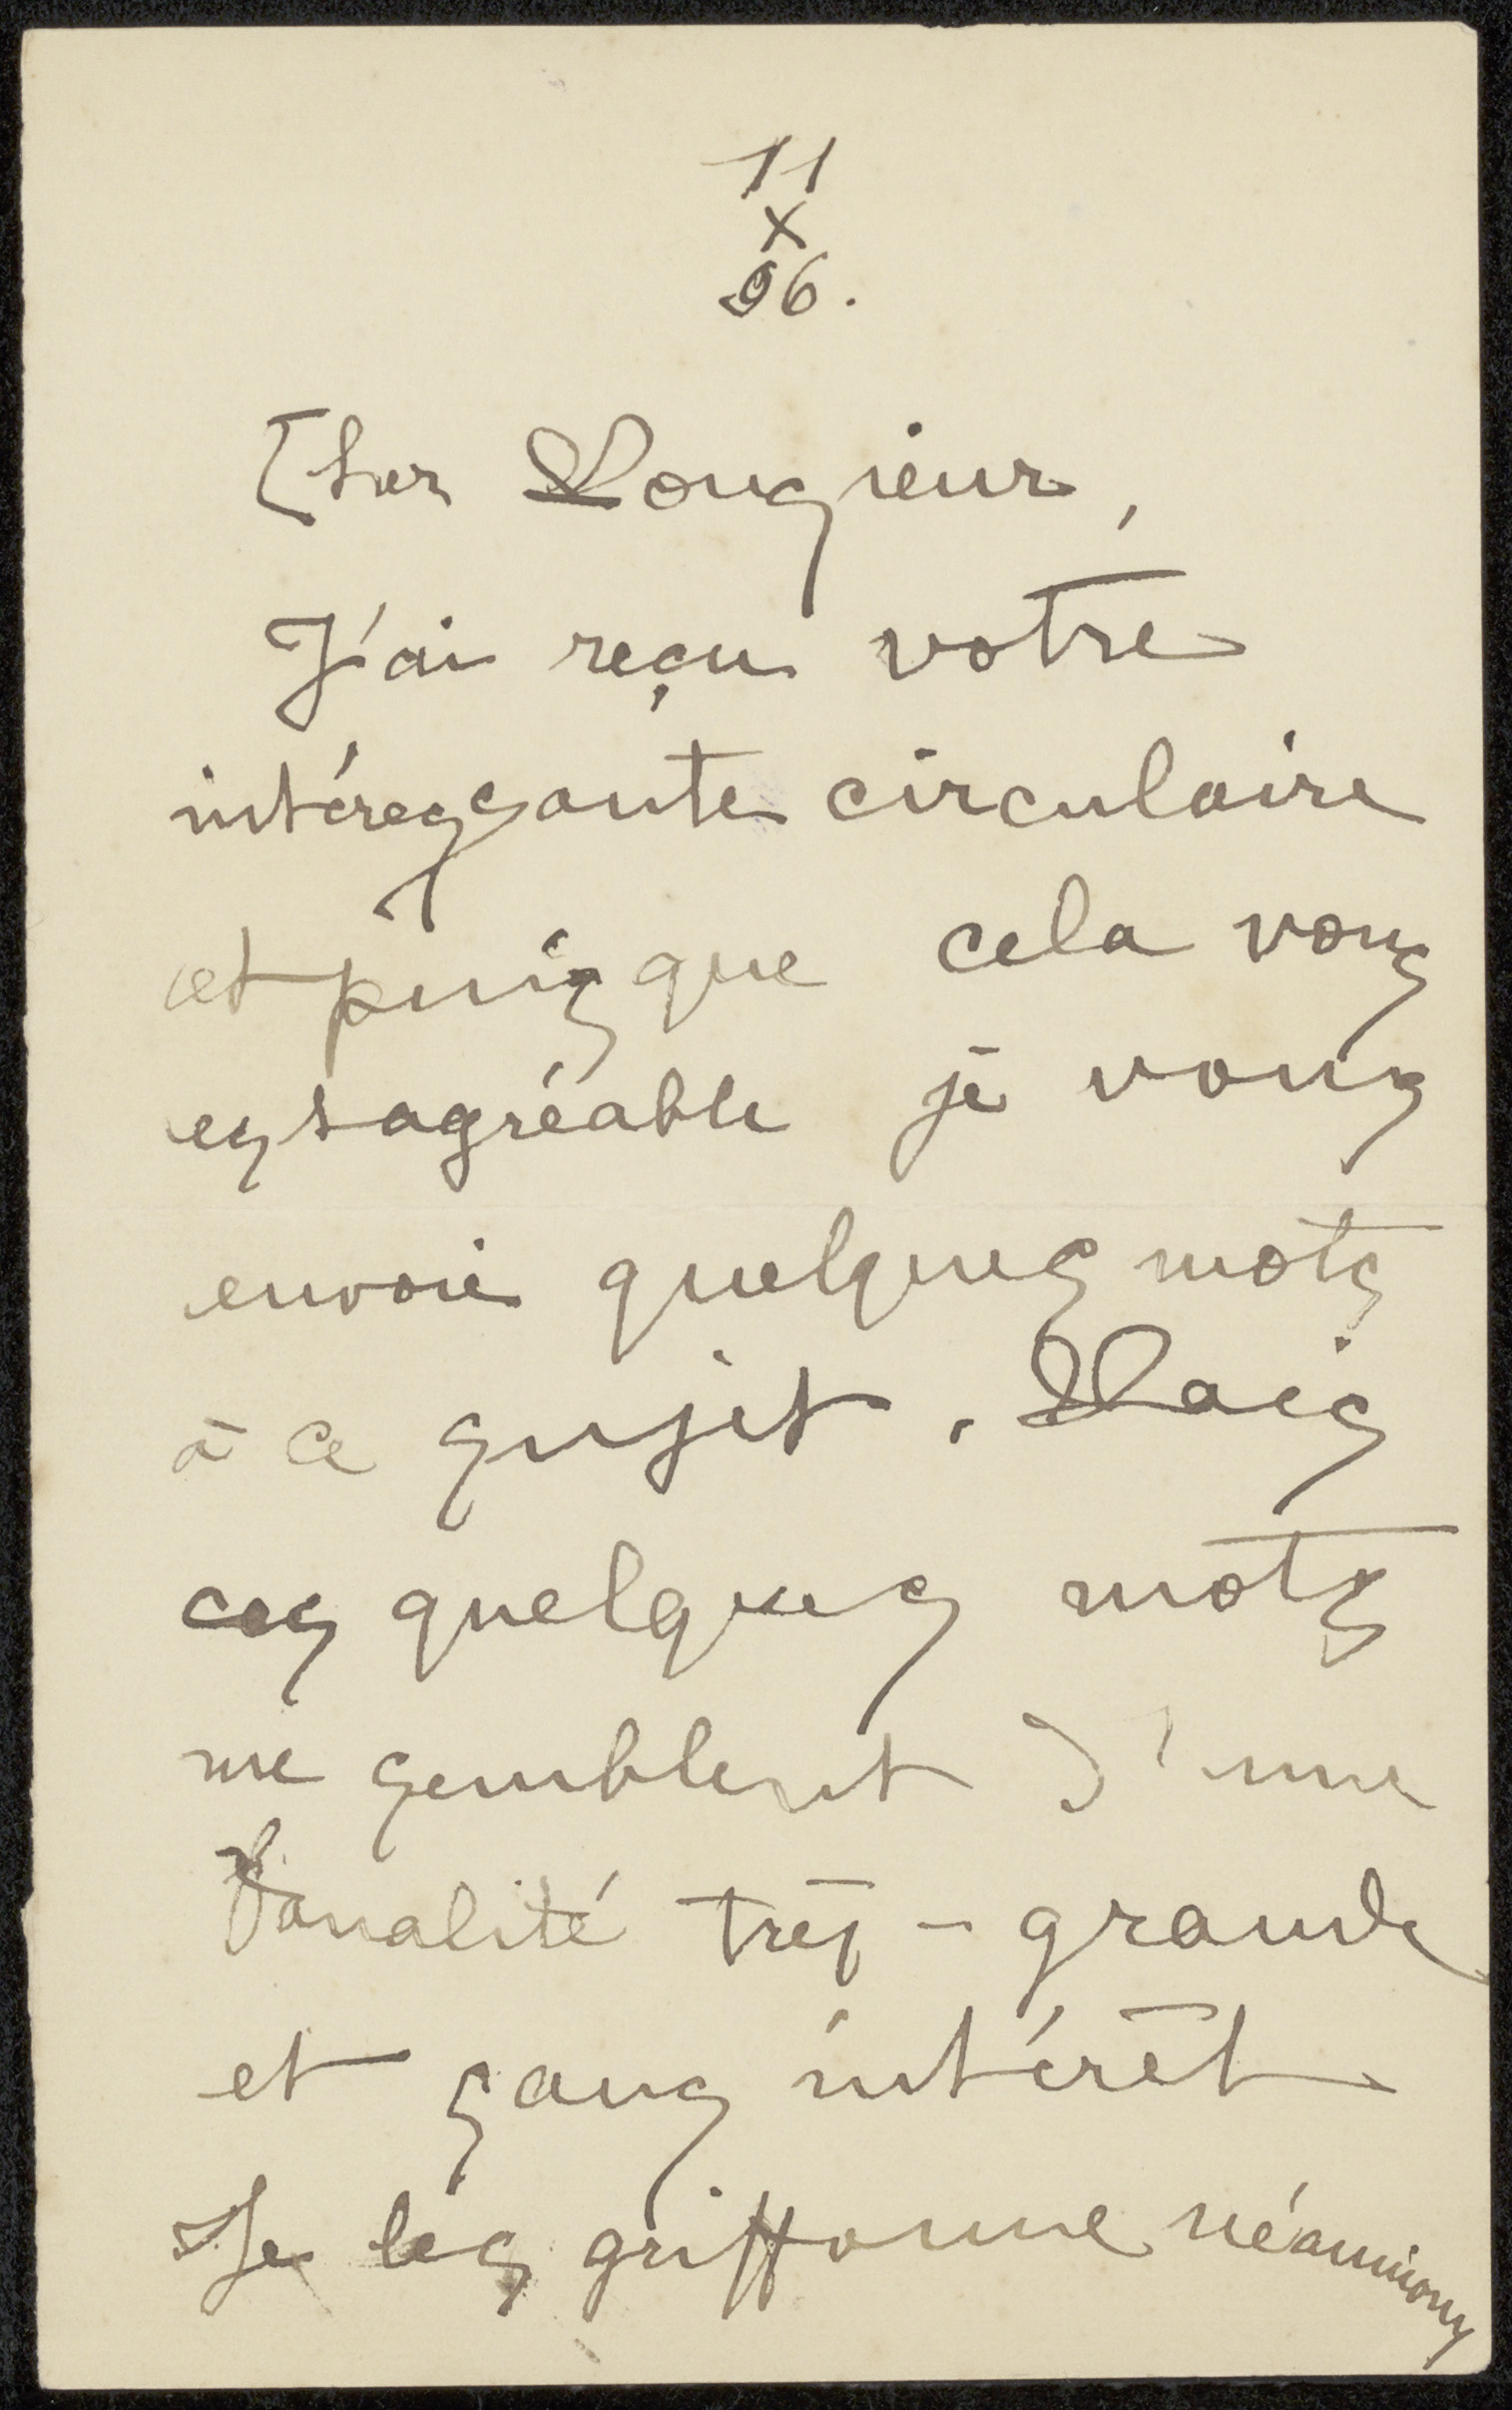 11
X
96.
Cher Monsieur,
J'ai reçu votre
intéressante circulaire
et puisque cela vous
est agréable je vous
envoie quelques mots
à ce sujet. Mais
ces quelques mots
me semblent d'une
banalité très-grande
et sans intérêt
Je les griffonne néanmions